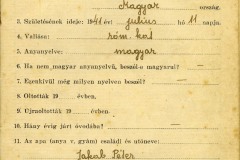 Magyar ország.
3. Születésének ideje: 1941 évi július hó 11 napja.
4. Vallása: róm. kat
5. Anyanyelve: magyar
6. Ha nem magyar anyanyelvű, beszél-e magyarul?
7. Ezenkívül még milyen nyelven beszél?
8. Oltották 19 évben.
9. Ujraoltották 19 évben.
10. Hány évig járt óvodába?
11. Az apa (anya v. gyám) családi és utóneve:
Jakab Péter